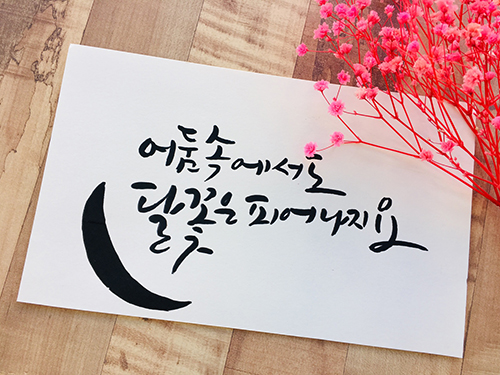 어둠속에서도
달꽃은 피어나지요